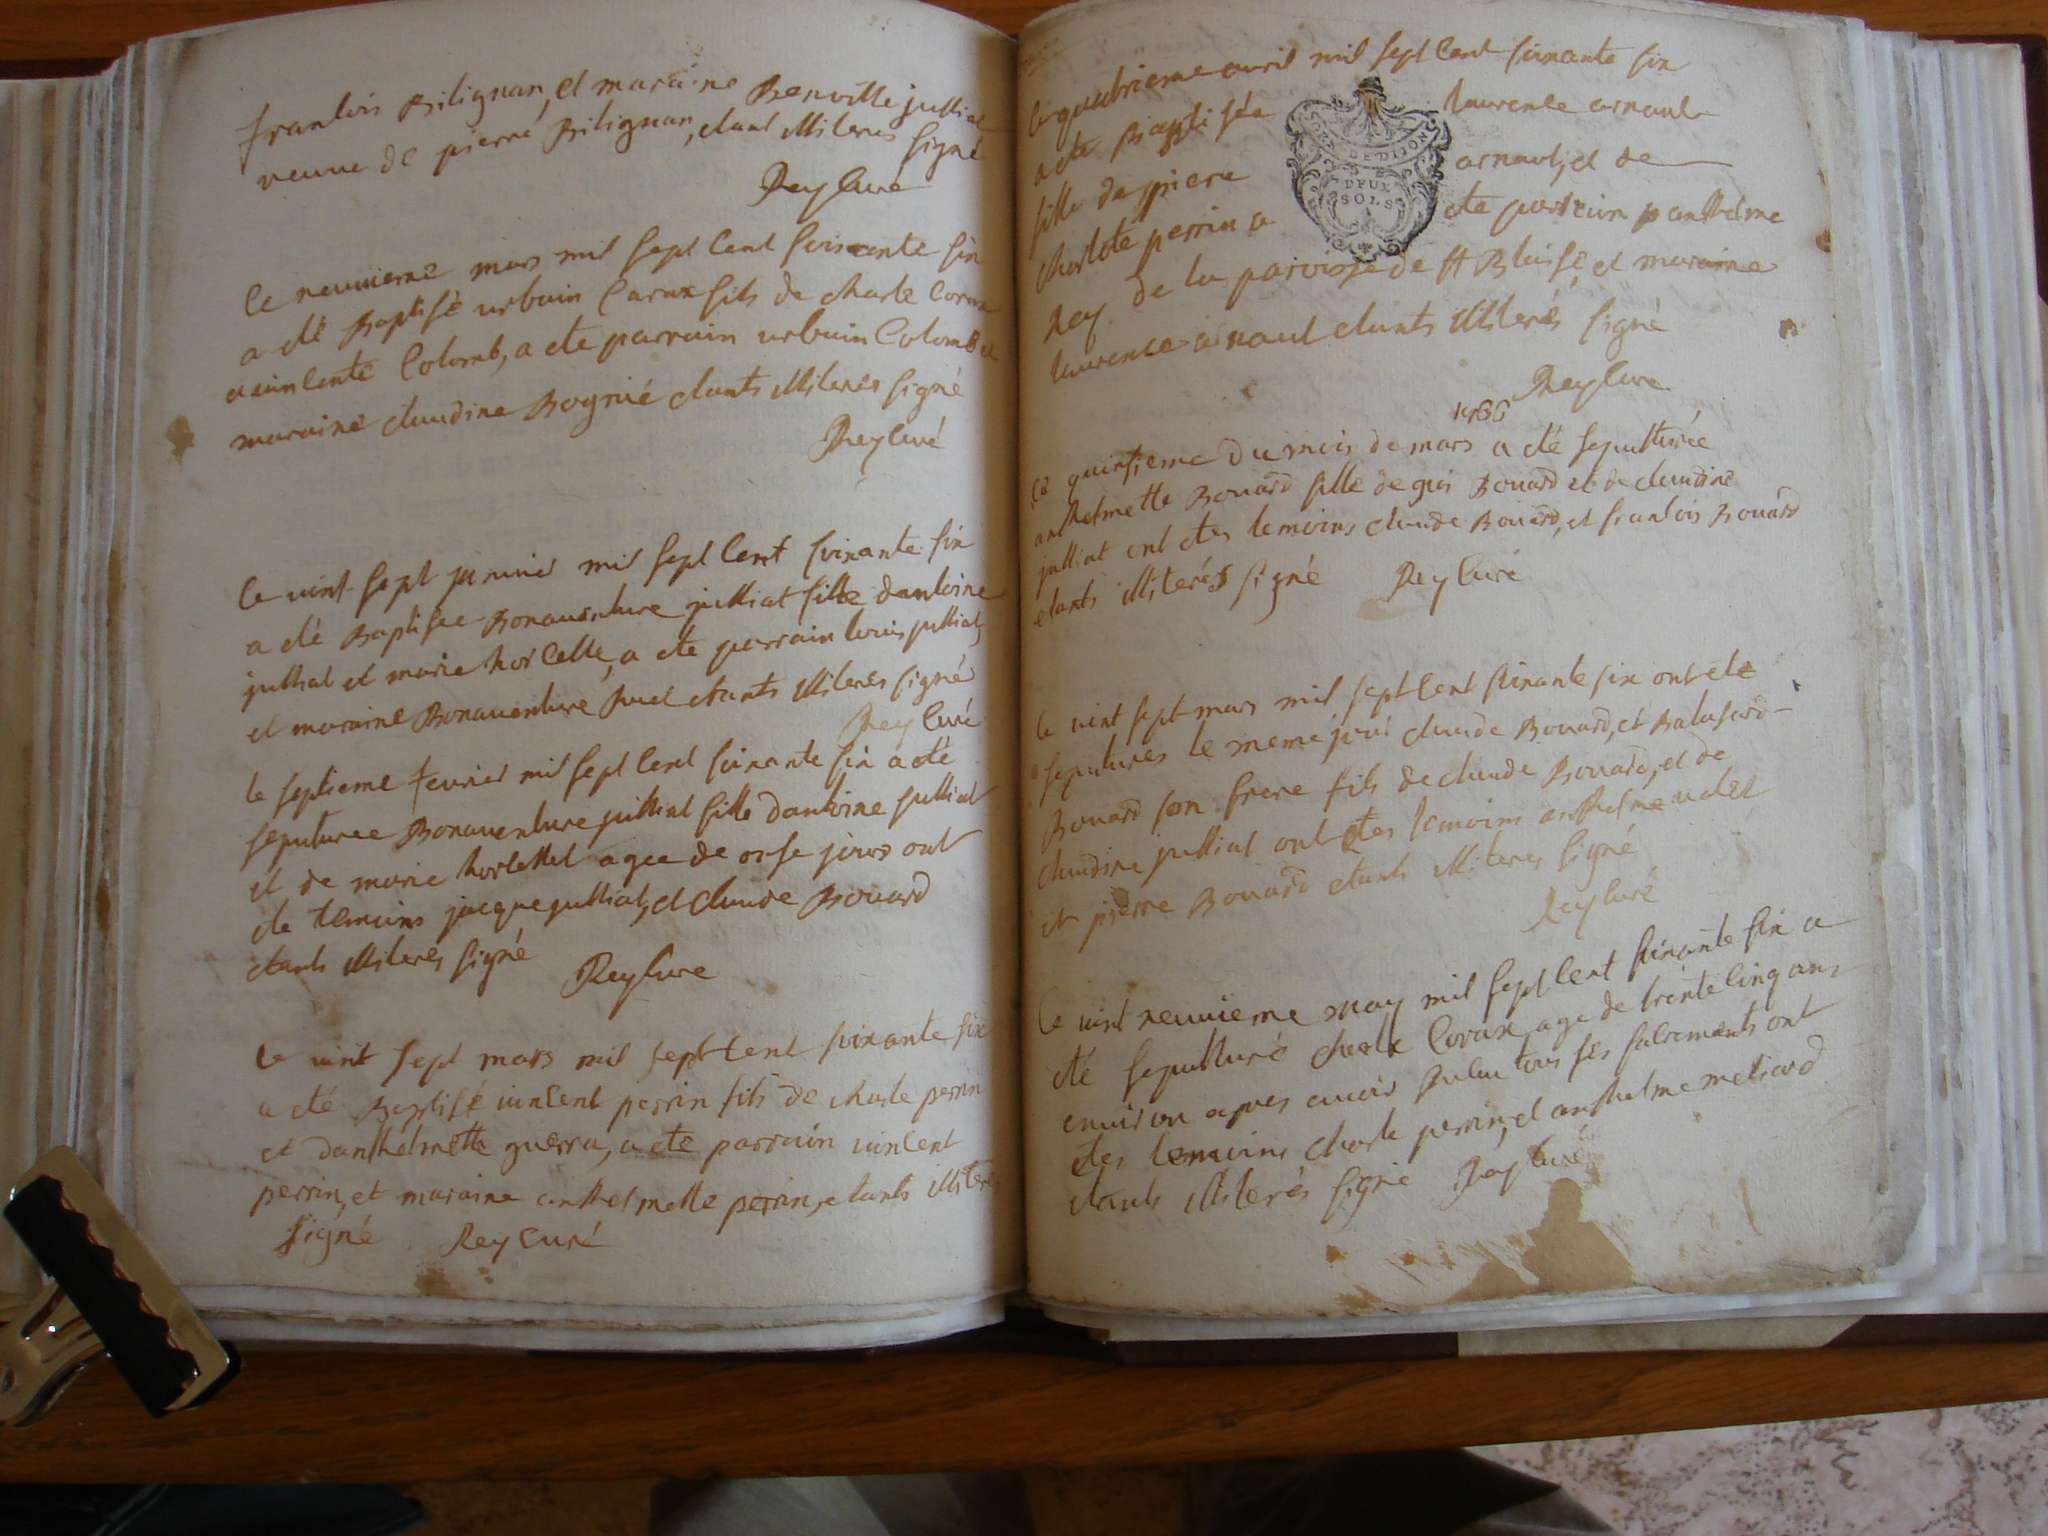 francois Bilignan, et maraine Benoitte julliat
veuve de pierre Bilignan, etant illiteres signé
Rey curé
le neuvieme mars mil sept cent soixante six
a eté Baptisé urbain Corax fils de charle Corax
Colomb, a ete parrain urbain Colomb et
maraine claudine Bognié etants illiterés signé
Rey curé
le vint sept janvier mil sept cent soixante six
a eté Baptisee Bonaventure julliat fille dantoine
julliat et marie horcelle, a ete parrain louis julliat,
et maraine Bonaventure etants illiterés signé
Rey curé
le septieme fevrier mil sept cent soixante six a eté
sepulturee Bonaventure julliat fille dantoine julliat
et de marie agee de onse jours ont
ete temoins jacque julliat, et claude Bouard
etants illiterés signé
Rey cure
le vint sept mars mil sept cent soixante six
a eté Baptisé vincent perrin fils de charle perrin
et danthelmette guerra, a ete parrain vincent
perrin, et maraine anthelmette perrin, etants illiterés
signé Rey curé
le quatrieme avril mil sept cent soixante six
a ete Baptisée laurence arnaut
fille de piere arnaut, et de
charlote perrin a ete parrein panthelme
Rey de la paroisse de st Blaise et maraine
laurence arnaut etants illiterés signé
Rey cure
GEN. DE DIJON
DEUX
SOLS
1766
le quinsieme du mois de mars a eté sepulturée
anthelmette Bouard fille de gui Bouard et de claudine
julliat ont etes temoins claude Bouard, et francois Bouard
etants illiterés signé Rey curé
le vint sept mars mil sept cent soixante six ont ete
sepultures le meme jour claude Bouard, et Baltasard
Bouard son frere fils de claude Bouard, et de
claudine julliat ont etes temoins anthelme valet
et pierre Bouard etants illiteres signé
Rey curé
le vint neuvieme may mil sept cent soixante six a
eté sepulturé charle Corax age de trente cinq ans
environ apres avoir recu tous ses sacrements ont
etes temoins charle perrin, et anthelme melliard
etants illiterés signé Rey curé